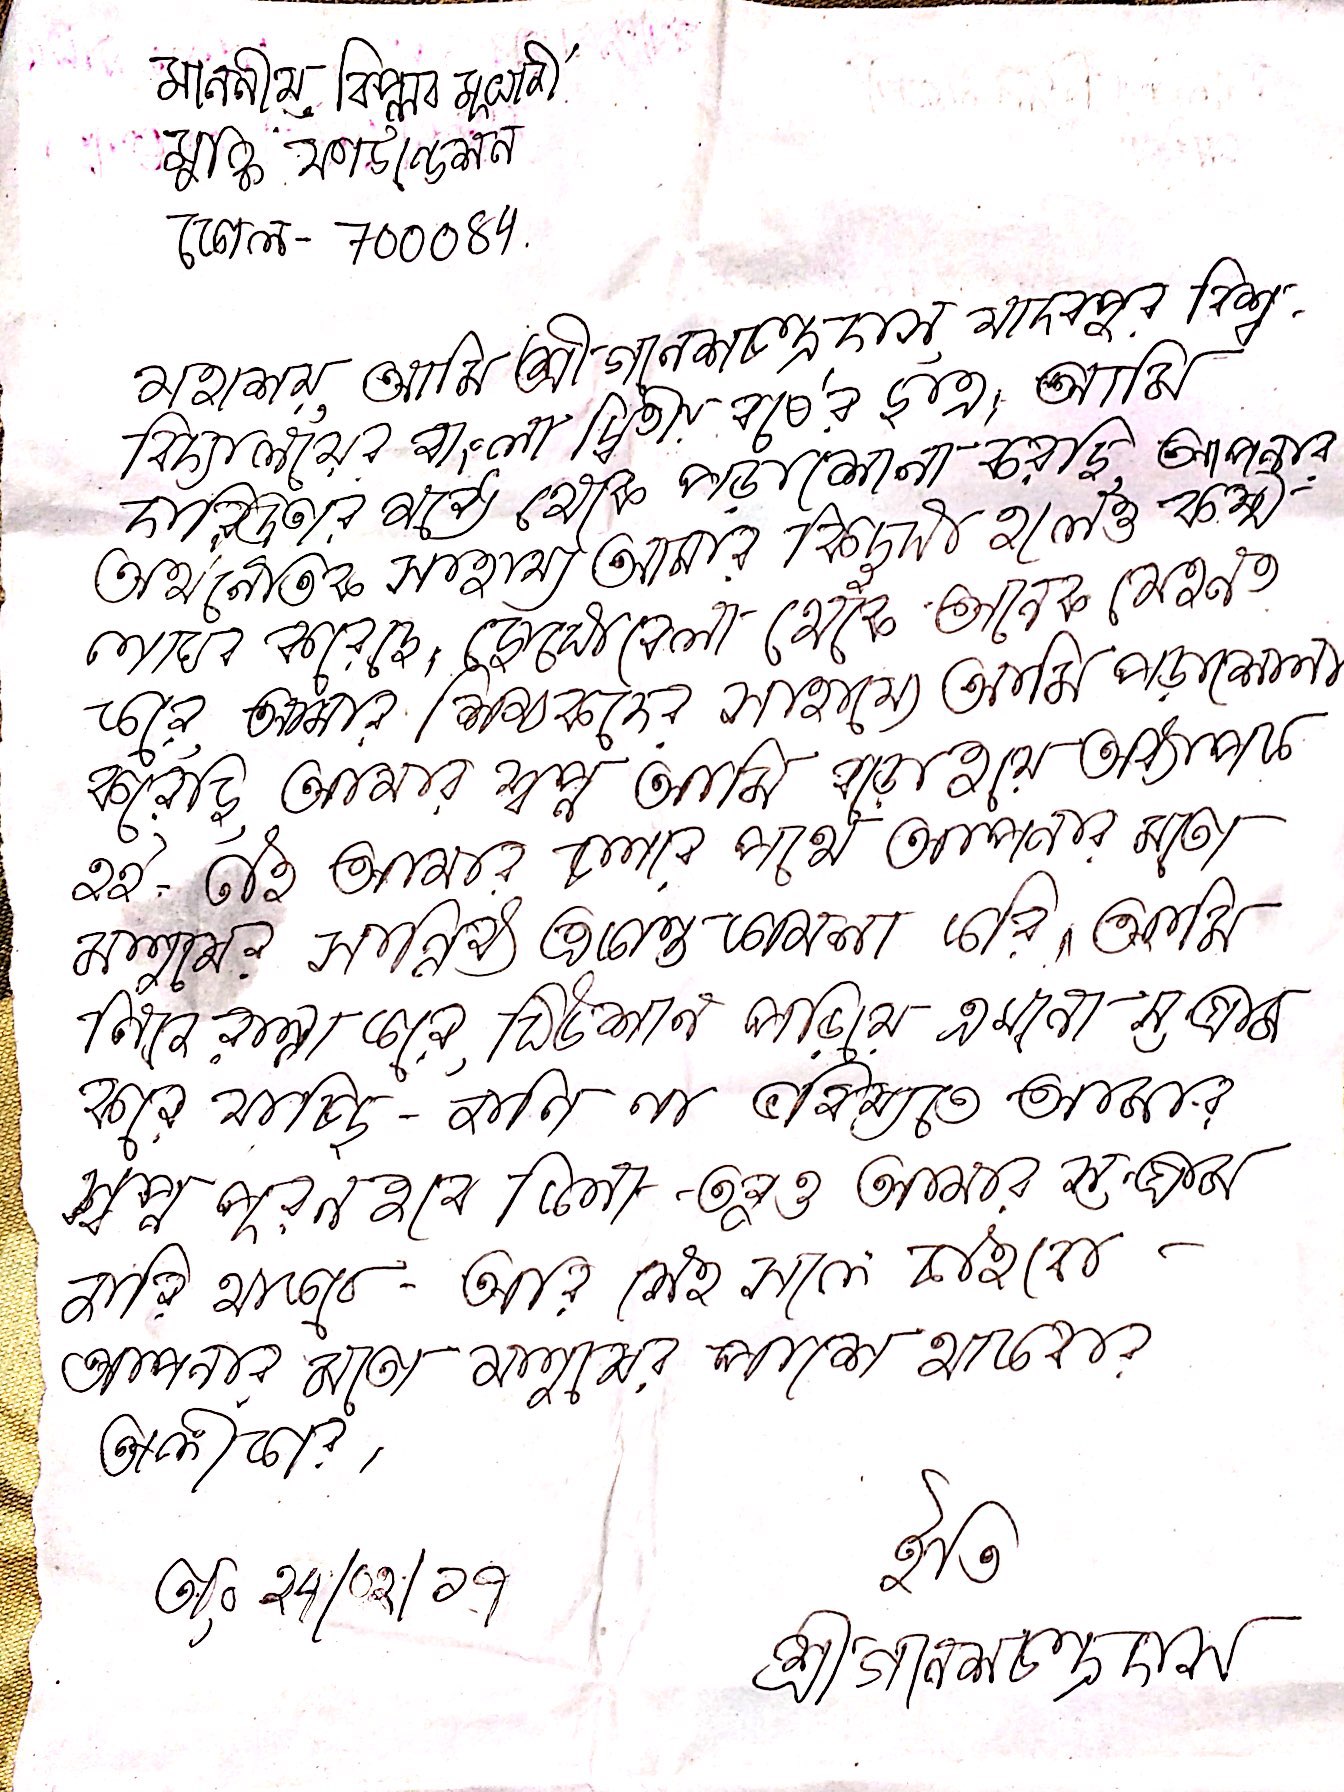 মাননীয়, বিপ্লব মুখার্জী
মুক্তি ফাউন্ডেশন
কোল- 700084.
মহাশয়, আমি শ্রীগনেশচন্দ্র দাস, যাদবপুর বিশ্ব-
বিদ্যালয়ের বাংলা দ্বিতীয় বর্ষের ছাত্র, আমি
দারিদ্রতার মধ্যে থেকে পড়াশোনা করছি, আপনার
অর্থনৈতিক সাহায্য আমার কিছুটা হলেও কষ্ট
লাঘব করেছে, ছোটোবেলা থেকে অনেক মেহনত
করে, আমার শিক্ষকদের সাহায্যে আমি পড়াশোনা
করেছি, আমার স্বপ্ন আমি বড়ো হয়ে অধ্যাপক
হই- তাই আমার চলার পথে আপনার মতো
মানুষের সান্নিধ্য একান্ত কামনা করি, আমি
নিজে রান্না করে, টিউশান পড়িয়ে এখনো সংগ্রাম
করে যাচ্ছি - জানি না ভবিষ্যতে আমার
স্বপ্ন পূরন হবে কিনা - তবুও আমার সংগ্রাম
জারি থাকবে - আর সেই সঙ্গে চাইবো -
আপনার মতো মানুষের পাশে থাকবার
অঙ্গীকার,
ইতি
তাং ২৭/০২/১৭
শ্রীগনেশচন্দ্র দাস